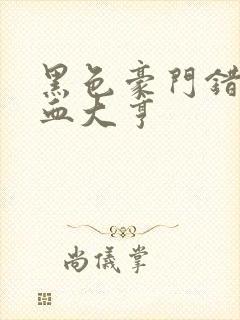 黑色豪門錯
血大亨
尚儀掌